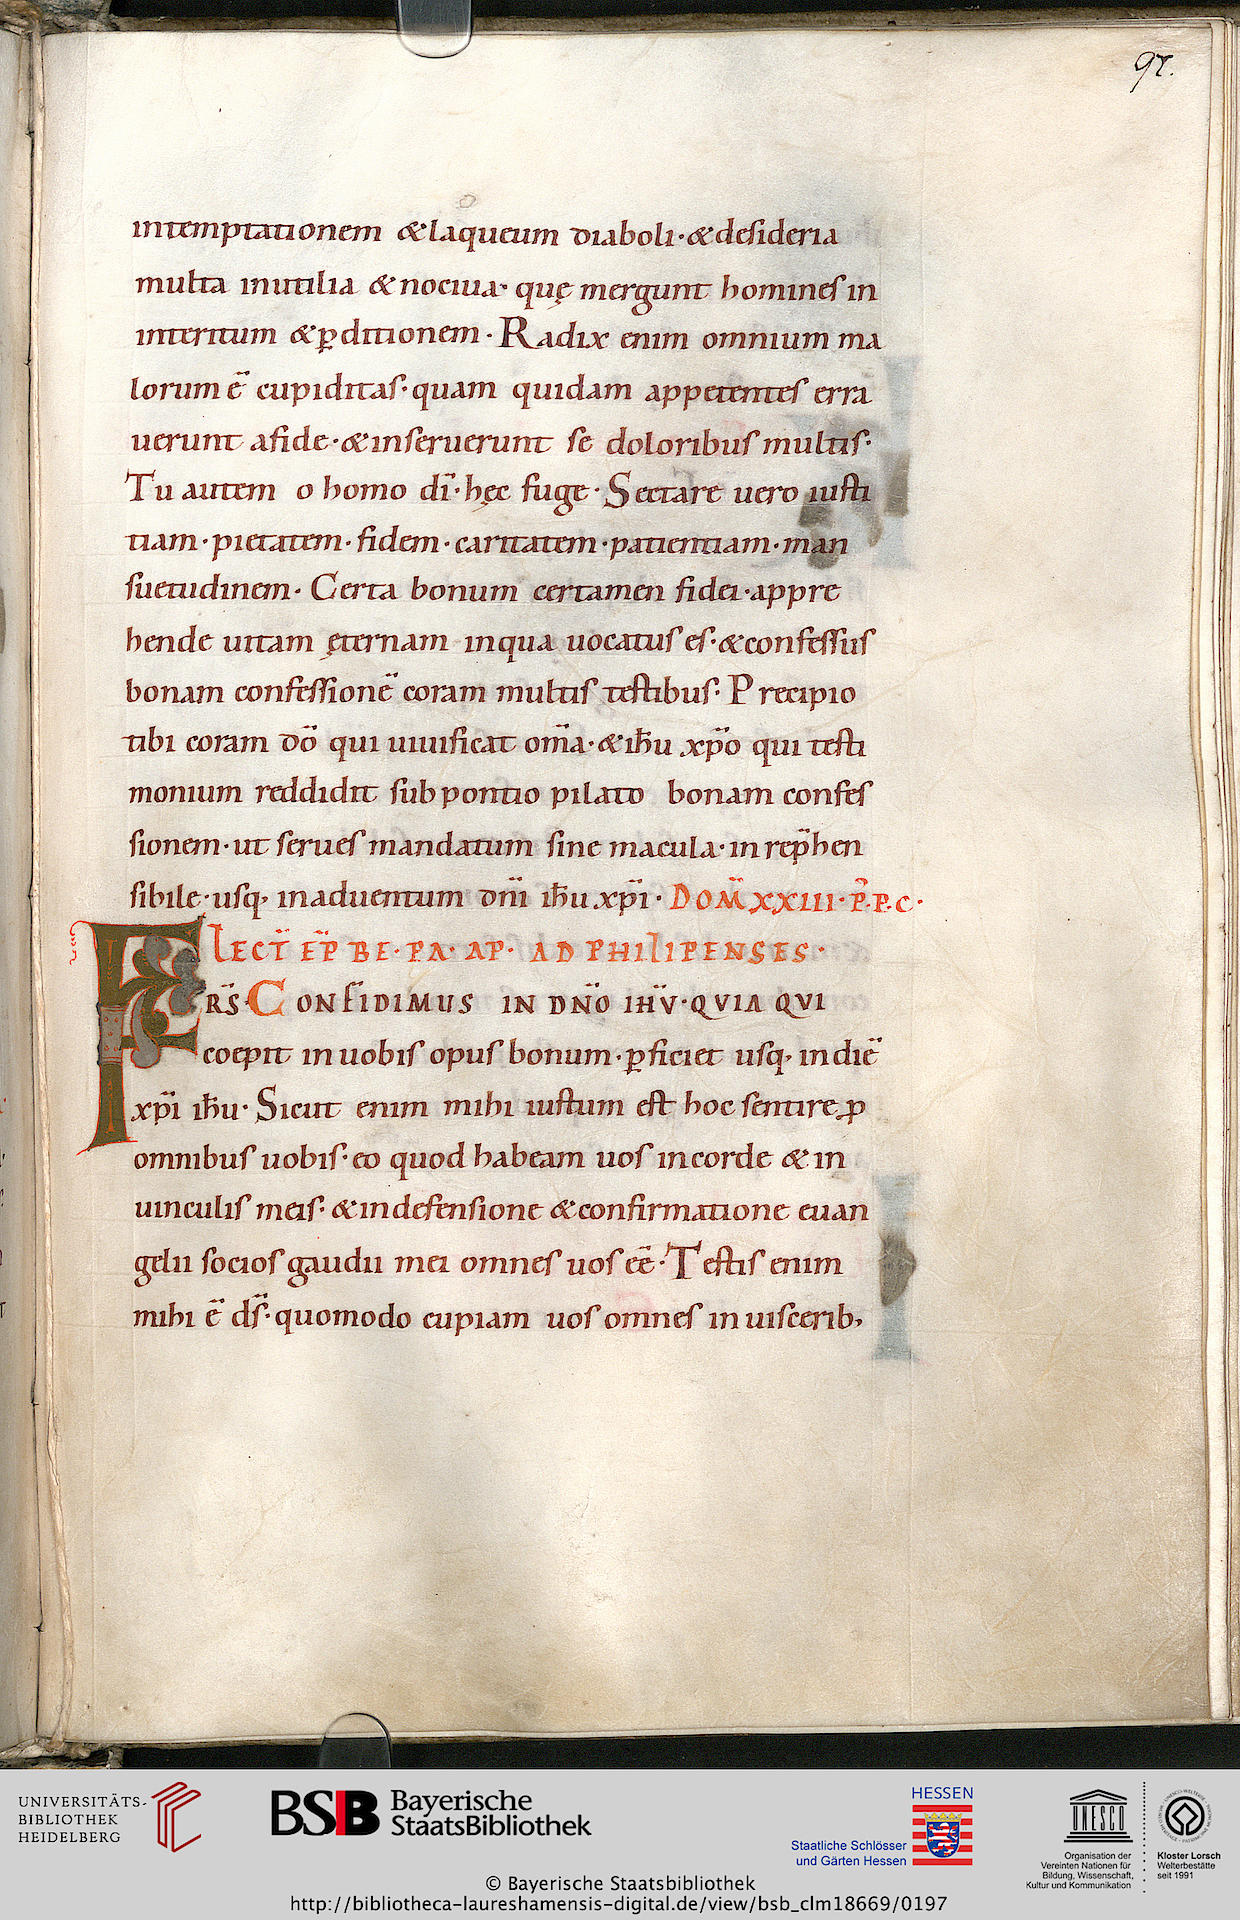 97.
intemptationem &laqueum diaboli·&desideria
multa inutilia &nociua· quę mergunt homines in
interitum &p̲ditionem· Radix enim omnium ma
lorum ē cupiditas·quam quidam appetentes erra
uerunt afide·&inseruerunt se doloribus multis·
Tu autem o homo dī·hęc fuge· Sectare uero iusti
tiam·pietatem·fidem·caritatem·patientiam·man
suetudinem· Certa bonum certamen fidei·appre
hende uitam ęternam inqua uocatus es·&confessus
bonam confessionē coram multis testibus· Precipio
tibi coram dō qui uiuificat om̄a·&ih̄u xp̄o qui testi
monium reddidit sub pontio pilato bonam confes
sionem·ut serues mandatum sine macula·inrep̄hen
sibile·usq; inaduentum dn̄i ih̄u xp̄i· DOM̄ XXIII·P̄·P·C·
LECT̄ EP̄ BE·PA·AP· AD PHILIPENSES·
FRS̄· CONFIDIMUS IN DN̄O IHV̄·QVIA QVI
coepit in uobis opus bonum·p̲ficiet usq; in diē
xp̄i ih̄u· Sicut enim mihi iustum est hoc sentire p̲
omnibus uobis·eo quod habeam uos incorde &in
uinculis meis·&indefensione &confirmatione euan
gelii socios gaudii mei omnes uos eē·Testis enim
mihi ē ds̄·quomodo cupiam uos omnes in uiscerib;
UNIVERSITÄTS-
BIBLIOTHEK
HEIDELBERG
BSB Bayerische
StaatsBibliothek
HESSEN
Staatliche Schlösser
und Gärten Hessen
UNESCO
Organisation der
Vereinten Nationen für
Bildung, Wissenschaft,
Kultur und Kommunikation
Kloster Lorsch
Welterbestätte
seit 1991
© Bayerische Staatsbibliothek
http://bibliotheca-laureshamensis-digital.de/view/bsb_clm18669/0197